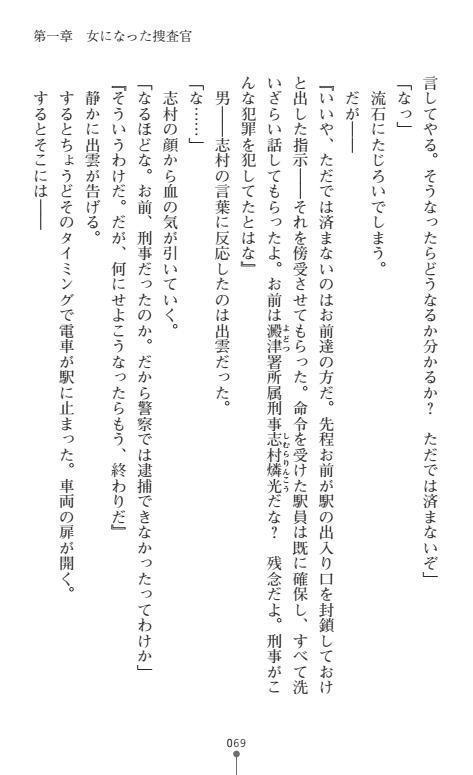 第一章　女になった捜査官
言してやる。そうなったらどうなるか分かるか？　ただでは済まないぞ」
「なっ」
流石にたじろいでしまう。
だが――
『いいや、ただでは済まないのはお前達の方だ。先程お前が駅の出入り口を封鎖しておけ
と出した指示――それを傍受させてもらった。命令を受けた駅員は既に確保し、すべて洗
いざらい話してもらったよ。お前は澱津署所属刑事志村燐光だな？　残念だよ。刑事がこ
んな犯罪を犯してたとはな』
男――志村の言葉に反応したのは出雲だった。
「な……」
志村の顔から血の気が引いていく。
「なるほどな。お前、刑事だったのか。だから警察では逮捕できなかったってわけか」
『そういうわけだ。だが、何にせよこうなったらもう、終わりだ』
静かに出雲が告げる。
するとちょうどそのタイミングで電車が駅に止まった。車両の扉が開く。
するとそこには――
069